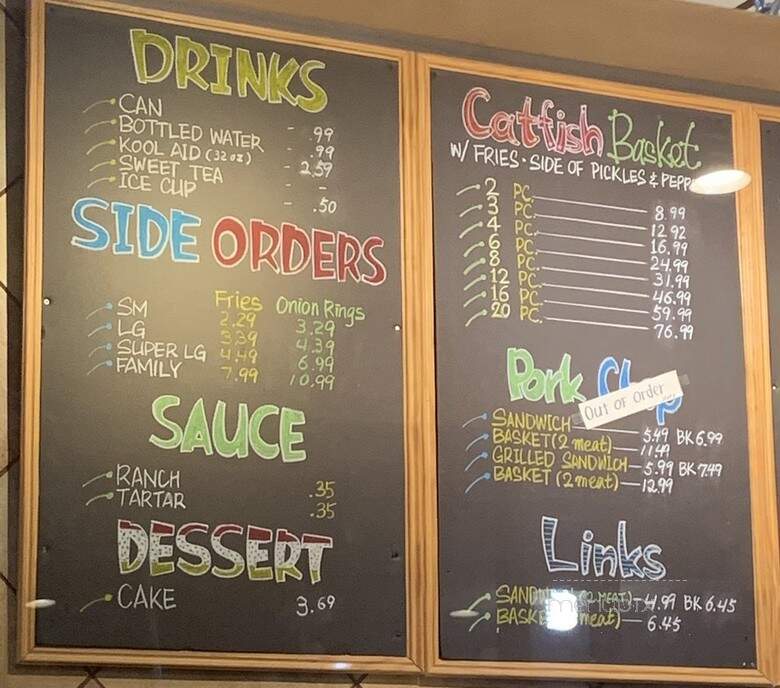 DRINKS
CAN - .99
BOTTLED WATER - .99
KOOL AID (32 oz) - 2.59
SWEET TEA -
ICE CUP - .50
SIDE ORDERS
Fries Onion Rings
SM 2.29 3.29
LG 3.39 4.39
SUPER LG 4.49 6.99
FAMILY 7.99 10.99
SAUCE
RANCH .35
TARTAR .35
DESSERT
CAKE 3.69
Catfish Basket
W/ FRIES · SIDE OF PICKLES & PEPP
2 PC. 8.99
3 PC. 12.92
4 PC. 16.99
6 PC. 24.99
8 PC. 31.99
12 PC. 46.99
16 PC. 59.99
20 PC. 76.99
Pork Chop
Out of Order
SANDWICH 5.49 BK 6.99
BASKET (2 meat) 11.49
GRILLED SANDWICH 5.99 BK 7.49
BASKET (2 meat) 12.99
Links
SANDWICH (2 MEAT) 4.99 BK 6.45
BASKET (meat) 6.45